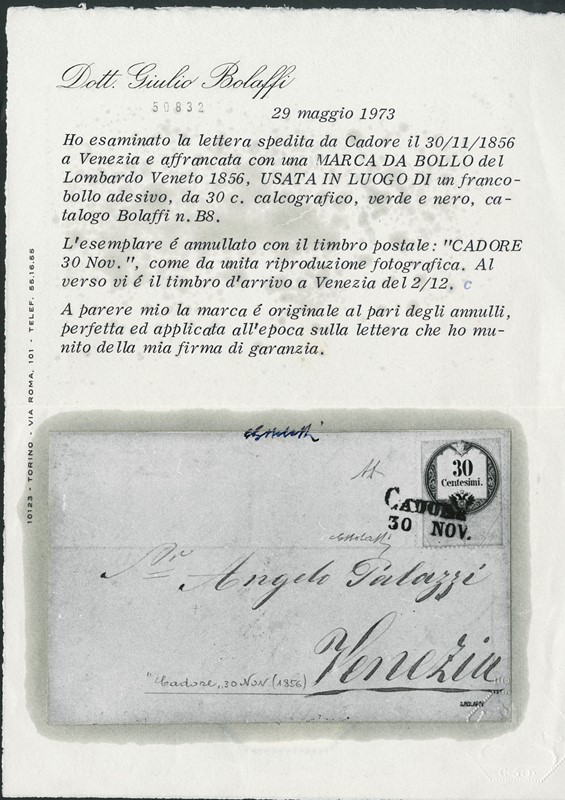 Dott. Giulio Bolaffi
50832
29 maggio 1973
Ho esaminato la lettera spedita da Cadore il 30/11/1856
a Venezia e affrancata con una MARCA DA BOLLO del
Lombardo Veneto 1856, USATA IN LUOGO DI un franco-
bollo adesivo, da 30 c. calcografico, verde e nero, ca-
talogo Bolaffi n. B8.
L'esemplare é annullato con il timbro postale: "CADORE
30 Nov.", come da unita riproduzione fotografica. Al
verso vi é il timbro d'arrivo a Venezia del 2/12. c
A parere mio la marca é originale al pari degli annulli,
perfetta ed applicata all'epoca sulla lettera che ho mu-
nito della mia firma di garanzia.
10123 - TORINO - VIA ROMA, 101 - TELEF. 55.16.55
30
Centesimi.
CADORE
30 NOV.
Angelo Palazzi
Venezia
"Cadore, 30 Nov (1856)